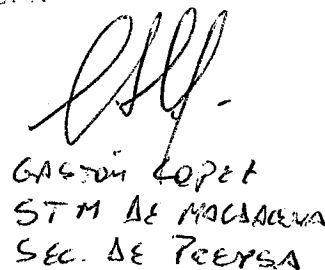 GASTÓN LOPEZ
STM DE MAGDALENA
SEC. DE PRENSA